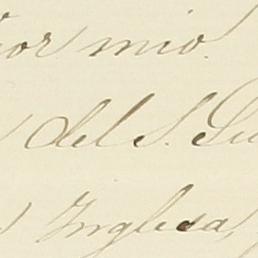 ñor mio.
del S. Lu
Inglesa,